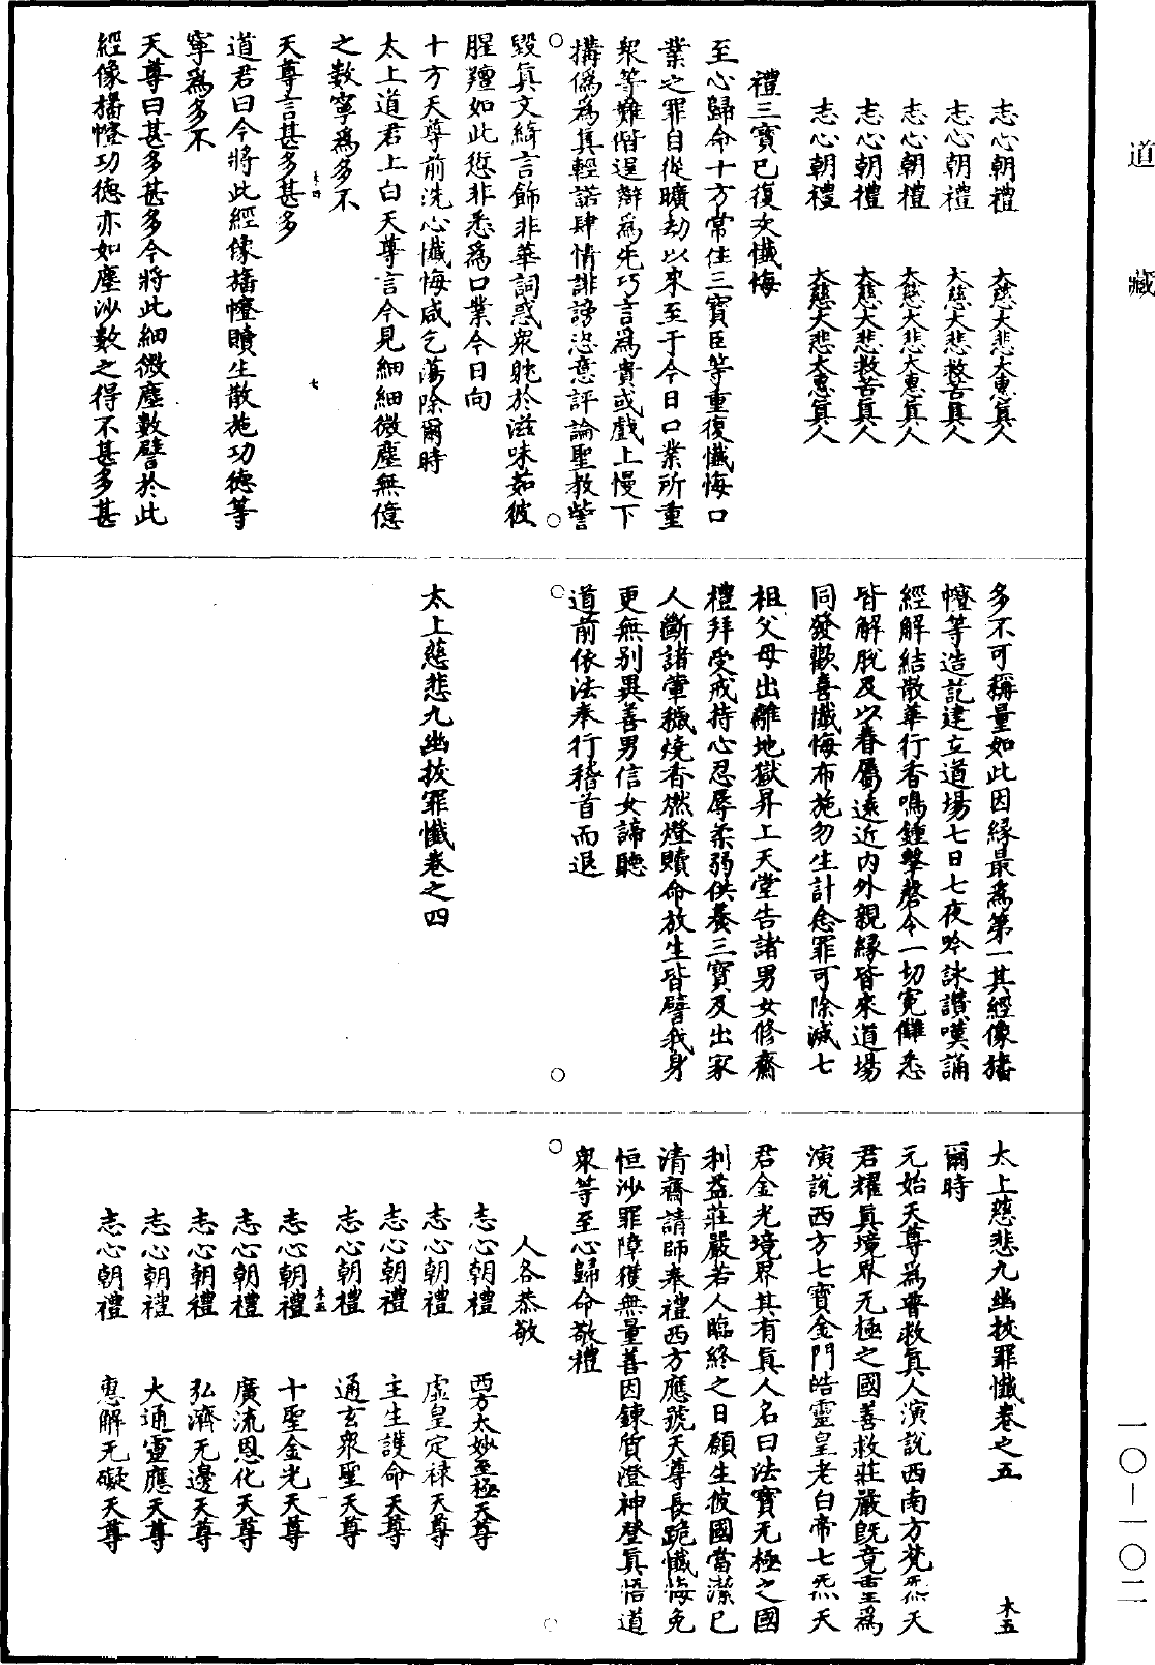 道藏
志心朝禮　大慈大悲大惠真人
志心朝禮　大慈大悲救苦真人
志心朝禮　大慈大悲大惠真人
志心朝禮　大慈大悲救苦真人
志心朝禮　大慈大悲大惠真人
禮三寶已復次懺悔
至心歸命十方常住三寶臣等重復懺悔口
業之罪自從曠劫以來至于今日口業所重
衆等難偕逞辯為先巧言為貴或戲上慢下
搆偽為真輕諾肆情誹謗恣意評論聖教訾
毀真文綺言飾非華詞惑衆躭於滋味茹彼
腥羶如此愆非悉為口業今日向
十方天尊前洗心懺悔咸乞蕩除爾時
太上道君上白天尊言今見細細微塵無億
之數寧為多不
木四
七
天尊言甚多甚多
道君曰今將此經像旛幢贖生散施功德等
寧為多不
天尊曰甚多甚多今將此細微塵數譬於此
經像旛幢功德亦如塵沙數之得不甚多甚
多不可稱量如此因緣最為第一其經像旛
幢等造訖建立道場七日七夜吟詠讚嘆誦
經解結散華行香鳴鍾擊磬令一切寃讎悉
皆解脫及以眷屬遠近內外親緣皆來道場
同發歡喜懺悔布施勿生計念罪可除滅七
祖父母出離地獄昇上天堂告諸男女修齋
禮拜受戒持心忍辱柔弱供養三寶及出家
人斷諸葷穢燒香燃燈贖命放生皆譬我身
更無別異善男信女諦聽
道前依法奉行稽首而退
太上慈悲九幽拔罪懺卷之四
太上慈悲九幽拔罪懺卷之五
木五
爾時
元始天尊為普救真人演說西南方梵炁天
君耀真境界无極之國善救莊嚴旣竟重為
演說西方七寶金門皓靈皇老白帝七炁天
君金光境界其有真人名曰法寶无極之國
利益莊嚴若人臨終之日願生彼國當潔已
清齋請師奉禮西方應號天尊長跪懺悔免
恒沙罪障獲無量善因鍊質澄神登真悟道
衆等至心歸命敬禮
人各恭敬
志心朝禮　西方太妙至極天尊
志心朝禮　虛皇定祿天尊
志心朝禮　主生護命天尊
志心朝禮　通玄衆聖天尊
木五
一
志心朝禮　十聖金光天尊
志心朝禮　廣流恩化天尊
志心朝禮　弘濟无邊天尊
志心朝禮　大通靈應天尊
志心朝禮　惠解无礙天尊
一〇—一〇二